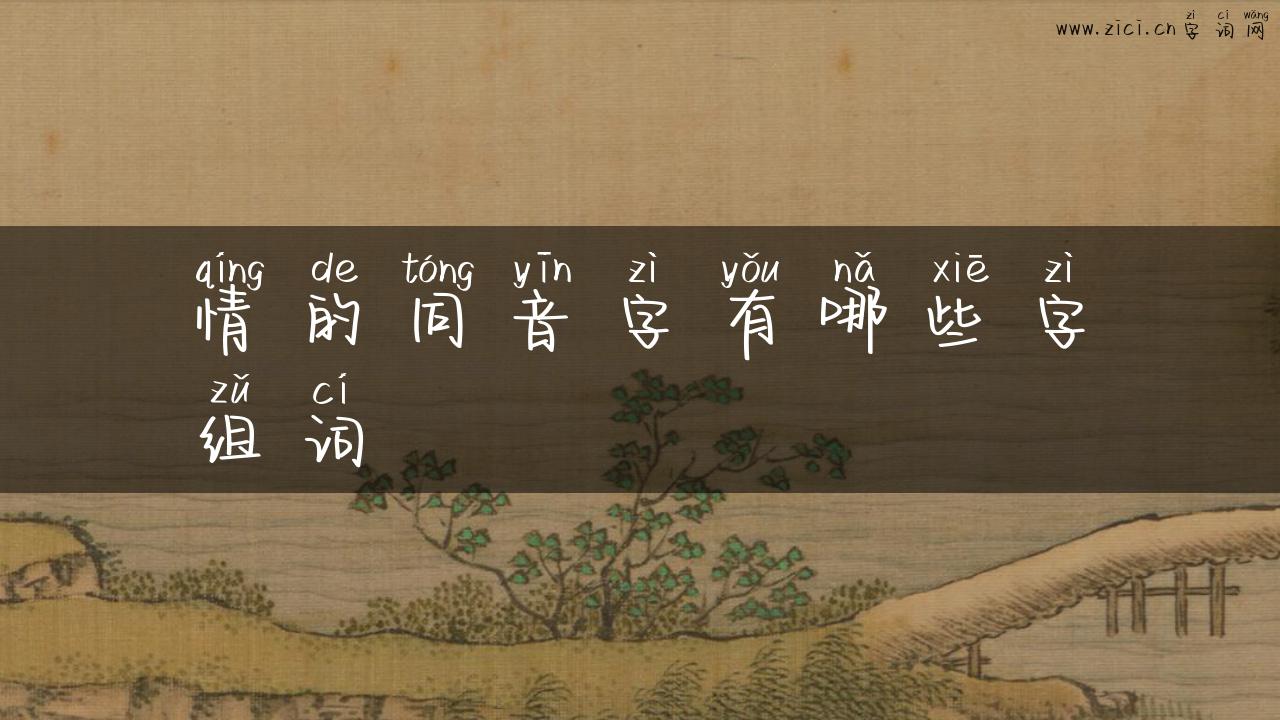 zì cí wǎng
www.zici.cn 字词网
qíng de tóng yīn zì yǒu nǎ xiē zì
情的同音字有哪些字
zǔ cí
组词